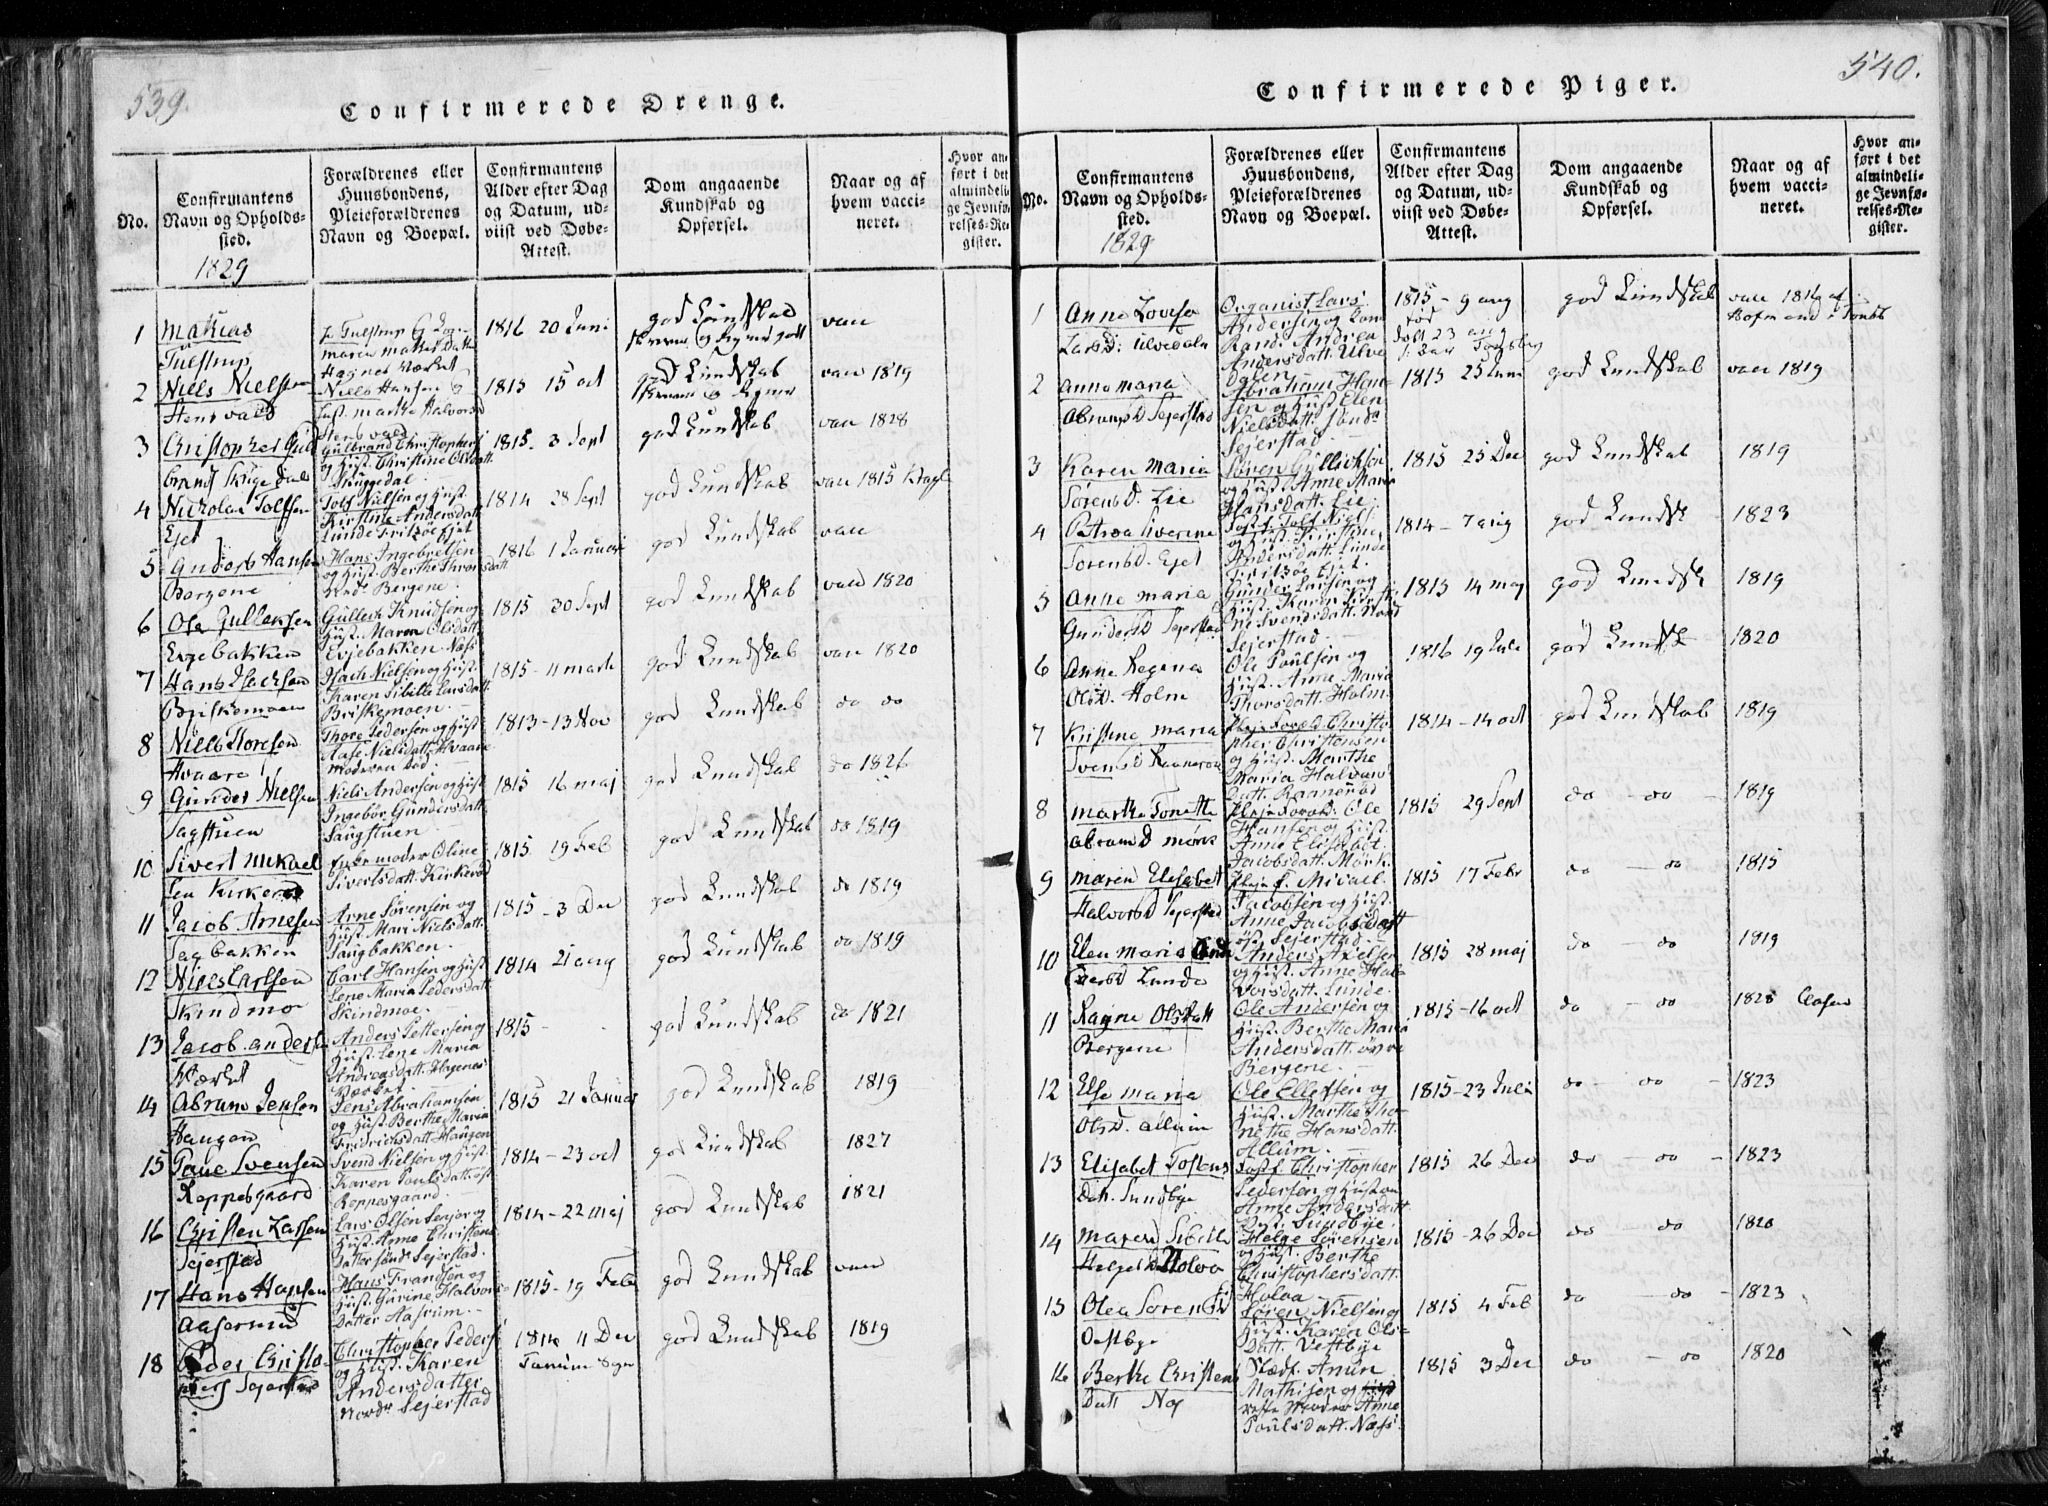 539.
Confirmerede Drenge.
No.
Confirmantens Navn og Opholds-sted.
Forældrenes eller Huusbondens, Pleieforældrenes Navn og Boepæl.
Confirmantens Alder efter Dag og Datum, ud-viist ved Døbe-Attest.
Dom angaaende Kundskab og Opførsel.
Naar og af hvem vacci-neret.
Hvor an-ført i det almindeli-ge Jevnfø-relses-Re-gister.
1829
1 Mathias Tulstrup
Maren
Hagnes Værket
1816 20 Juni
god Kundskab
vac
2 Niels Nielsen Stensvald
Niels Hansen &
Hust. Marthe Halvorsd
Stensvald
1815 15 oct
god Kundskab
vac 1819
3 Christopher Gul
brands
Gulbrand Christophers
og Hust. Christine Olsdatt.
1815- 3 Sept
god Kundskab
vac 1828
4 Nickolai Tolfsen
Ejet
Tolf Nielsen og Hust.
Kirstine Andersdatt.
Lunde Fritzöe Ejet
1814 28 Sept
god Kundskab
vac 1815
5 Gudorb Hansen
Bergene
Hans Ingebretsen
og Hust. Berthe Thorsdatt
Nedr Bergene.
1816 1 Januar
god Kundskab
vac
6 Ole Gulleksen
Evjebakken
Gulleck Knudsen og
Hust. Maren Olsdatt.
Evjebakken. Næss
1815 30 Sept
god Kundskab
vac 1820
7 Hans Isacksen
Briskemoen
Isach Nielsen og Hust.
Karen Sibille Larsdatt.
Briskemoen.
1815 - 11 marts
god Kundskab
vac 1820
8 Niels Thoresen
Hvaare
Thore Pedersen og Hust
Aase Nielsdatt. Hvaare
Moderen död.
1813 - 13 Nov
god Kundskab
do do
9 Gunder Nielsen
Sagstuen
Niels Andersen og Hust
Ingebør Gundersdatt
Saugstuen
1815 16 maj
god Kundskab
do 1826
10 Sivert Mikael
sen Kirkerød
moder Oline
Sivertsdatt. Kirkerød
1815 19 Feb
god Kundskab
do 1819
11 Jacob Arnesen
Sagbakken
Arne Sörensen og
Hust. Mari Nielsdatt.
Saugbakken.
1815 - 3 Dec
god Kundskab
do 1819
12 Niels Carlsen
Skindmo
Carl Hansen og Hust
Lene Maria Pedersdatt.
Skindmoe.
1814 21 aug
god Kundskab
do 1819
13 Jacob Andersen
Værket
Anders Pettersen og
Hust. Lene Maria
Andreasdatt. Hagenes
Værket
1815 -
god Kundskab
do 1821
14 Abram Jensen
Haugen
Jens Abrahamsen
og Hust. Berthe Maria
Fridrichsdatt. Haugen
1815 21 Januar
god Kundskab
1819
15 Poul Svensen
Roppesgaard
Svend Nielsen og Hust.
Karen Poulsdatt.
Roppesgaard
1814 - 23 oct
god Kundskab
1827
16 Christen Larsen
Sejerstad
Lars Olsen Senjor og
Hust. Anne Christens
Datter Söndr Sejerstad.
1814 - 22 maj
god Kundskab
1821
17 Hans Hansen
Aaserum
Hans Frandsen og
Hust. Gurine Halvors
Datter Aasrum.
1815 - 19 Feb
god Kundskab
vac
18 Peder Christo
phers Sejerstad
Christopher Peders
og Hust. Karen
Andersdatter
Nordr Sejerstad
1814 4 Dec
Tanum Sogn
god Kundskab
1819
540.
Confirmerede Piger.
No.
Confirmantens Navn og Opholds-sted.
Forældrenes eller Huusbondens, Pleieforældrenes Navn og Boepæl.
Confirmantens Alder efter Dag og Datum, ud-viist ved Døbe-Attest.
Dom angaaende Kundskab og Opførsel.
Naar og af hvem vacci-neret.
Hvor an-ført i det almindeli-ge Jevnfø-relses-Re-gister.
1829
1 Anne Lovisa
Larsd: Ulvedalen
Organist Lars
Andersen og
Andrea
Andersdatt. Ulve
Dalen
1815 - 9 aug
född
döbt 23 aug
god Kundskab
vac 1816 af
2 Anne Maria
Abramsd Sejerstad
Abraham Han
sen og Hust. Elen
Nielsdatt. Sönde
Sejerstad
1815 25 Juni
god Kundskab
vac 1819
3 Karen Maria
Sørensd. Lie
Sören Gullichsen
og Hust. Anne Maria
Hansdatt. Lie.
1815 25 Dec
god Kundskab
1819
4 Petrea Siverine
Sørensd. Ejet
Tolf Niels
og Hust. Kirstine
Andersdatt. Lunde
Fritzöe Ejet.
1814 - 7 aug
god Kundsk
1823
5 Anne Maria
Gundersd Sejerstad
Gunder Larsen og
Hust. Karen Kirsti
ne Svendsdatt. Nord
Sejerstad.
1815 14 maj
god Kundsk
1819
6 Anne Regina
Olsd. Holm
Ole Poulsen og
Hust. Anne Maria
Thorsdatt. Holm.
1816 19 Juli
god Kundsk
1820
7 Kristine Maria
Svensd
Pleje Foræld. Christo
pher Christensen
og Hust. Marthe
Maria Halvors
Datt. Raanerød
1814 - 14 oct
god Kundskab
1819
8 Marthe Tonette
Abramsd Mørk
Pleje Foræld. Ole
Hansen og Hust.
Anne Elisabet
Jacobsdatt. Mørk.
1815 29 Sept
do - do -
1819
9 Maren Elisabet
Halvorsd Sejerstad
Pleje f. Micael
Jacobsen og Hust.
Anne Jacobsdatt
öst Sejerstad.
1815 17 Febr
do - do
1815
10 Elen Maria
Lunde
Anders Axelsen
og Hust. Anne Hal
vorsdatt. Lunde.
1815 28 maj
do - do
1819
11 Ragne Olsdatt
Bergene
Ole Andersen og
Hust. Berthe Maria
Andersdatt. övre
Bergene.
1815 - 16 oct
do - do
1828 Clasen
12 Else Maria
Olsd. Allum
Ole Ellefsen og
Hust. Marthe Tho
nethe Hansdatt.
Allum.
1815 - 23 Juli
do - do -
1823
13 Elisabet Tostens
Dat. Sundbye
Christopher
Pedersen og Hustru
Anne Andersdatt
Sundbye.
1815 26 Dec
do - do -
1823
14 Maren Sibille
Helgesd Holva
Helge Sörensen
og Hust. Berthe
Christophersdatt.
Holva
1815 - 26 Dec
do - do
1820
15 Olea Sørensd
Oestbye
Sören Nielsen og
Hust. Karen Ols
Datt. Vestbye
1815 4 Feb
do - do -
1823
16 Berthe Christens
Datt Næs
Stedf. Amun
Mathisen og
Moder Anne
Poulsdatt. Næss.
1815 3 Dec
do - do
1820